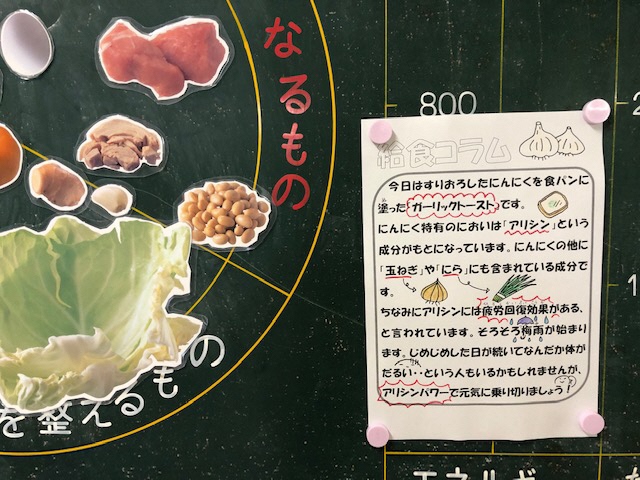 なるもの
を整えるもの
800
給食コラム
今日はすりおろしたにんにくを食パンに
塗った「ガーリックトースト」です。
にんにく特有のにおいは「アリシン」という
成分がもとになっています。にんにくの他に
「玉ねぎ」や「にら」にも含まれている成分で
す。
ちなみにアリシンには疲労回復効果がある、
と言われています。そろそろ梅雨が始まり
ます。じめじめした日が続いてなんだか体が
だるい・・という人もいるかもしれませんが、
アリシンパワーで元気に乗り切りましょう!
エネルギ